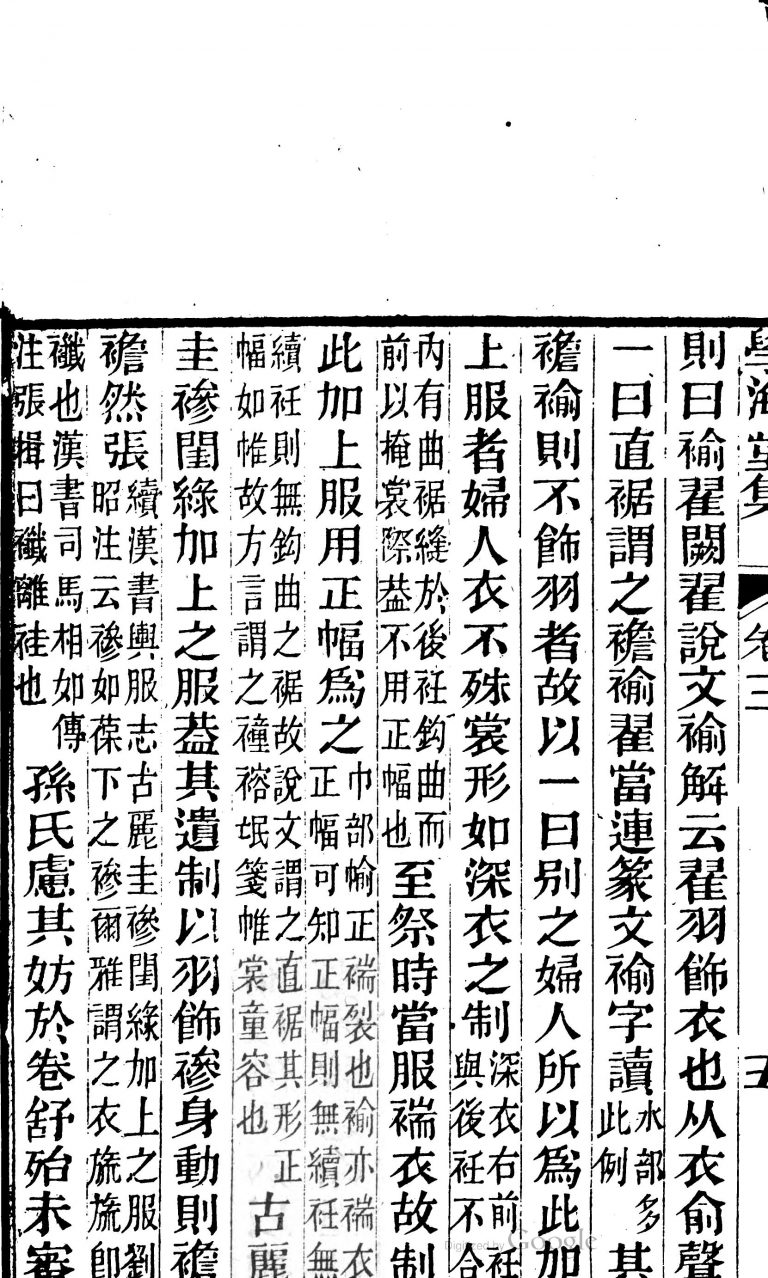 學海堂集 卷三 五
則曰褕翟闕翟說文褕解云翟羽飾衣也从衣俞聲
一曰直裾謂之襜褕翟當連篆文褕字讀
水部多
此例
其
襜褕則不飾羽者故以一曰別之婦人所以爲此加
上服者婦人衣不殊裳形如深衣之制
深衣右前衽
與後衽不合
內有曲裾縫於後衽鈎曲而
前以掩裳際葢不用正幅也
至祭時當服褍衣故制
此加上服用正幅爲之
巾部㡏正褍裂也褕亦褍衣
正幅可知正幅則無續衽無
續衽則無鈎曲之裾故說文謂之直裾其形正
幅如帷故方言謂之䙱褣氓箋帷裳童容也
古麗
圭襂閨緣加上之服葢其遺制以羽飾襂身動則襜
襜然張
續漢書輿服志古麗圭襂閨緣加上之服劉
昭注云襂如葆下之襂爾雅謂之衣旒旒卽
襳也漢書司馬相如傳
注張揖曰襳離袿也
孫氏慮其妨於卷舒殆未審
Digitized by Google